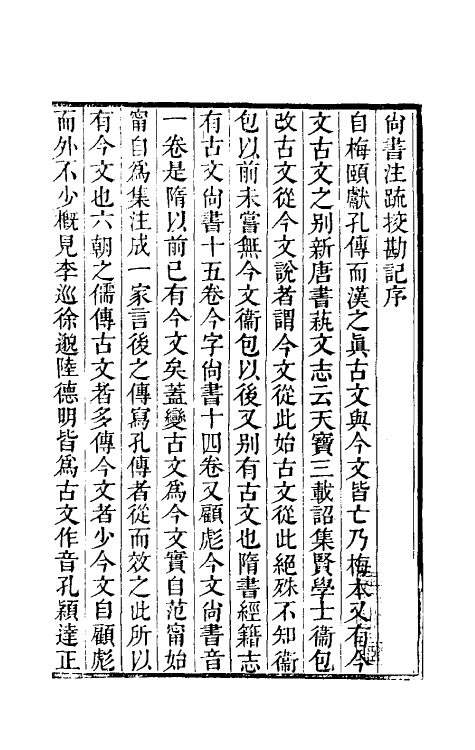 尙書注疏挍勘記序
自梅頤獻孔傳而漢之眞古文與今文皆亡乃梅本又有今
文古文之别新唐書蓺文志云天寶三載詔集賢學士衞包
改古文從今文說者謂今文從此始古文從此絕殊不知衞
包以前未嘗無今文衞包以後又别有古文也隋書經籍志
有古文尙書十五卷今字尙書十四卷又顧彪今文尙書音
一卷是隋以前已有今文矣蓋變古文爲今文實自范甯始
甯自爲集注成一家言後之傳寫孔傳者從而效之此所以
有今文也六朝之儒傳古文者多傳今文者少今文自顧彪
而外不少槪見李巡徐邈陸德明皆爲古文作音孔穎達正